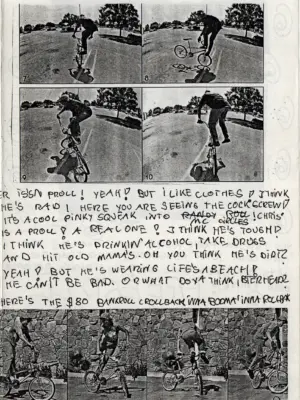 7
8
9
10
ER ISSN PROLL! YEAH! BUT I LIKE CLOTHES! J THINK
HE'S RAD! HERE YOU ARE SEEING THE COCKSCREW!
IT'S A COOL PINKY SQUEAK INTO RANDY ROLL! CHRIS'
IS A PROLL! A REAL ONE! J THINK HE'S TOUGH!
I THINK HE'S DRINKIN' ALCOHOL, TAKE DRUGS
AND HIT OLD MAMA'S. OH YOU THINK HE'S DIRT?
YEAH! BUT HE'S WEARING LIFE'S A BEACH!
HE CAN'T BE BAD. OR WHAT DO YA THINK,
HERE'S THE $80